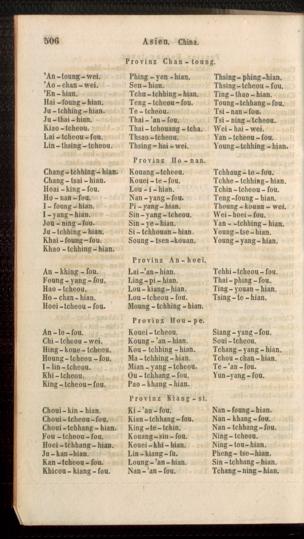 506 Asien. China.
Provinz Chan-toung.
'An-toung-wei. Phing-yen-hian. Thsing-phing-hian.
'Ao-chan-wei. Sen-hian. Thsing-tcheou-fou.
'En-hian. Tchu-tchhing-hian. Ting-thao-hian.
Hai-foung-hian. Teng-tcheou-fou. Toung-tchhang-fou.
Ju-tchhing-hian. Te-tcheou. Tsi-nan-fou.
Ju-thai-hian. Thai-'an-fou. Tsi-ning-tcheou.
Kiao-tcheou. Thai-tchouang-tcha. Wei-hai-wei.
Lai-tcheou-fou. Thsao-tcheou. Yan-tcheou-fou.
Lin-thsing-tcheou. Thsing-hai-wei. Young-tchhing-hian.
Provinz Ho-nan.
Chang-tchhing-hian. Kouang-tcheou. Tchhang-te-fou.
Chang-tsai-hian. Kouei-te-fou. Tchhe-tchhing-hian.
Hoai-king-fou. Lou-i-hian. Tchin-tcheou-fou.
Ho-nan-fou. Nan-yang-fou. Teng-foung-hian.
I-foung-hian. Pi-yang-hian. Thoung-kouan-wei.
I-yang-hian. Sin-yang-tcheou. Wei-hoei-fou.
Jou-ning-fou. Sin-ye-hian. Yan-tchhing-hian.
Ju-tchhing-hian. Si-tchhouan-hian. Young-tse-hian.
Khai-foung-fou. Soung-tsen-kouan. Young-yang-hian.
Khao-tchhing-hian.
Provinz An-hoei.
An-khing-fou. Lai-'an-hian. Tchhi-tcheou-fou.
Foung-yang-fou. Ling-pi-hian. Thai-phing-fou.
Hao-tcheou. Lou-kiang-hian. Ting-youan-hian.
Ho-chan-hian. Lou-tcheou-fou. Tsing-te-hian.
Hoei-tcheou-fou. Moung-tchhing-hian.
Provinz Hou-pe.
An-lo-fou. Kouei-tcheou. Siang-yang-fou.
Chi-tcheou-wei. Koung-'an-hian. Soui-tcheou.
Hing-koue-tcheou. Kou-tchhing-hian. Tchang-yang-hian.
Houng-tcheou-fou. Ma-tchhing-hian. Tchou-chan-hian.
I-lin-tcheou. Mian-yang-tcheou. Te-'an-fou.
Khi-tcheou. Ou-tchhang-fou. Yun-yang-fou.
King-tcheou-fou. Pao-khang-hian.
Provinz Kiang-si.
Choui-kin-hian. Ki-'an-fou. Nan-foung-hian.
Choui-tcheou-fou. Kian-tchhang-fou. Nan-khang-fou.
Choui-tchhang-hian. King-te-tchin. Nan-tchhang-fou.
Fou-tcheou-fou. Kouang-sin-fou. Ning-tcheou.
Hoei-tchhang-hian. Kouei-khi-hian. Ning-tou-hian.
Ju-kan-hian. Lin-kiang-fu. Pheng-tse-hian.
Kan-tcheou-fou. Loung-'an-hian. Sin-tchhang-hian.
Khieou-kiang-fou. Nan-'an-fou. Tchang-ning-hian.